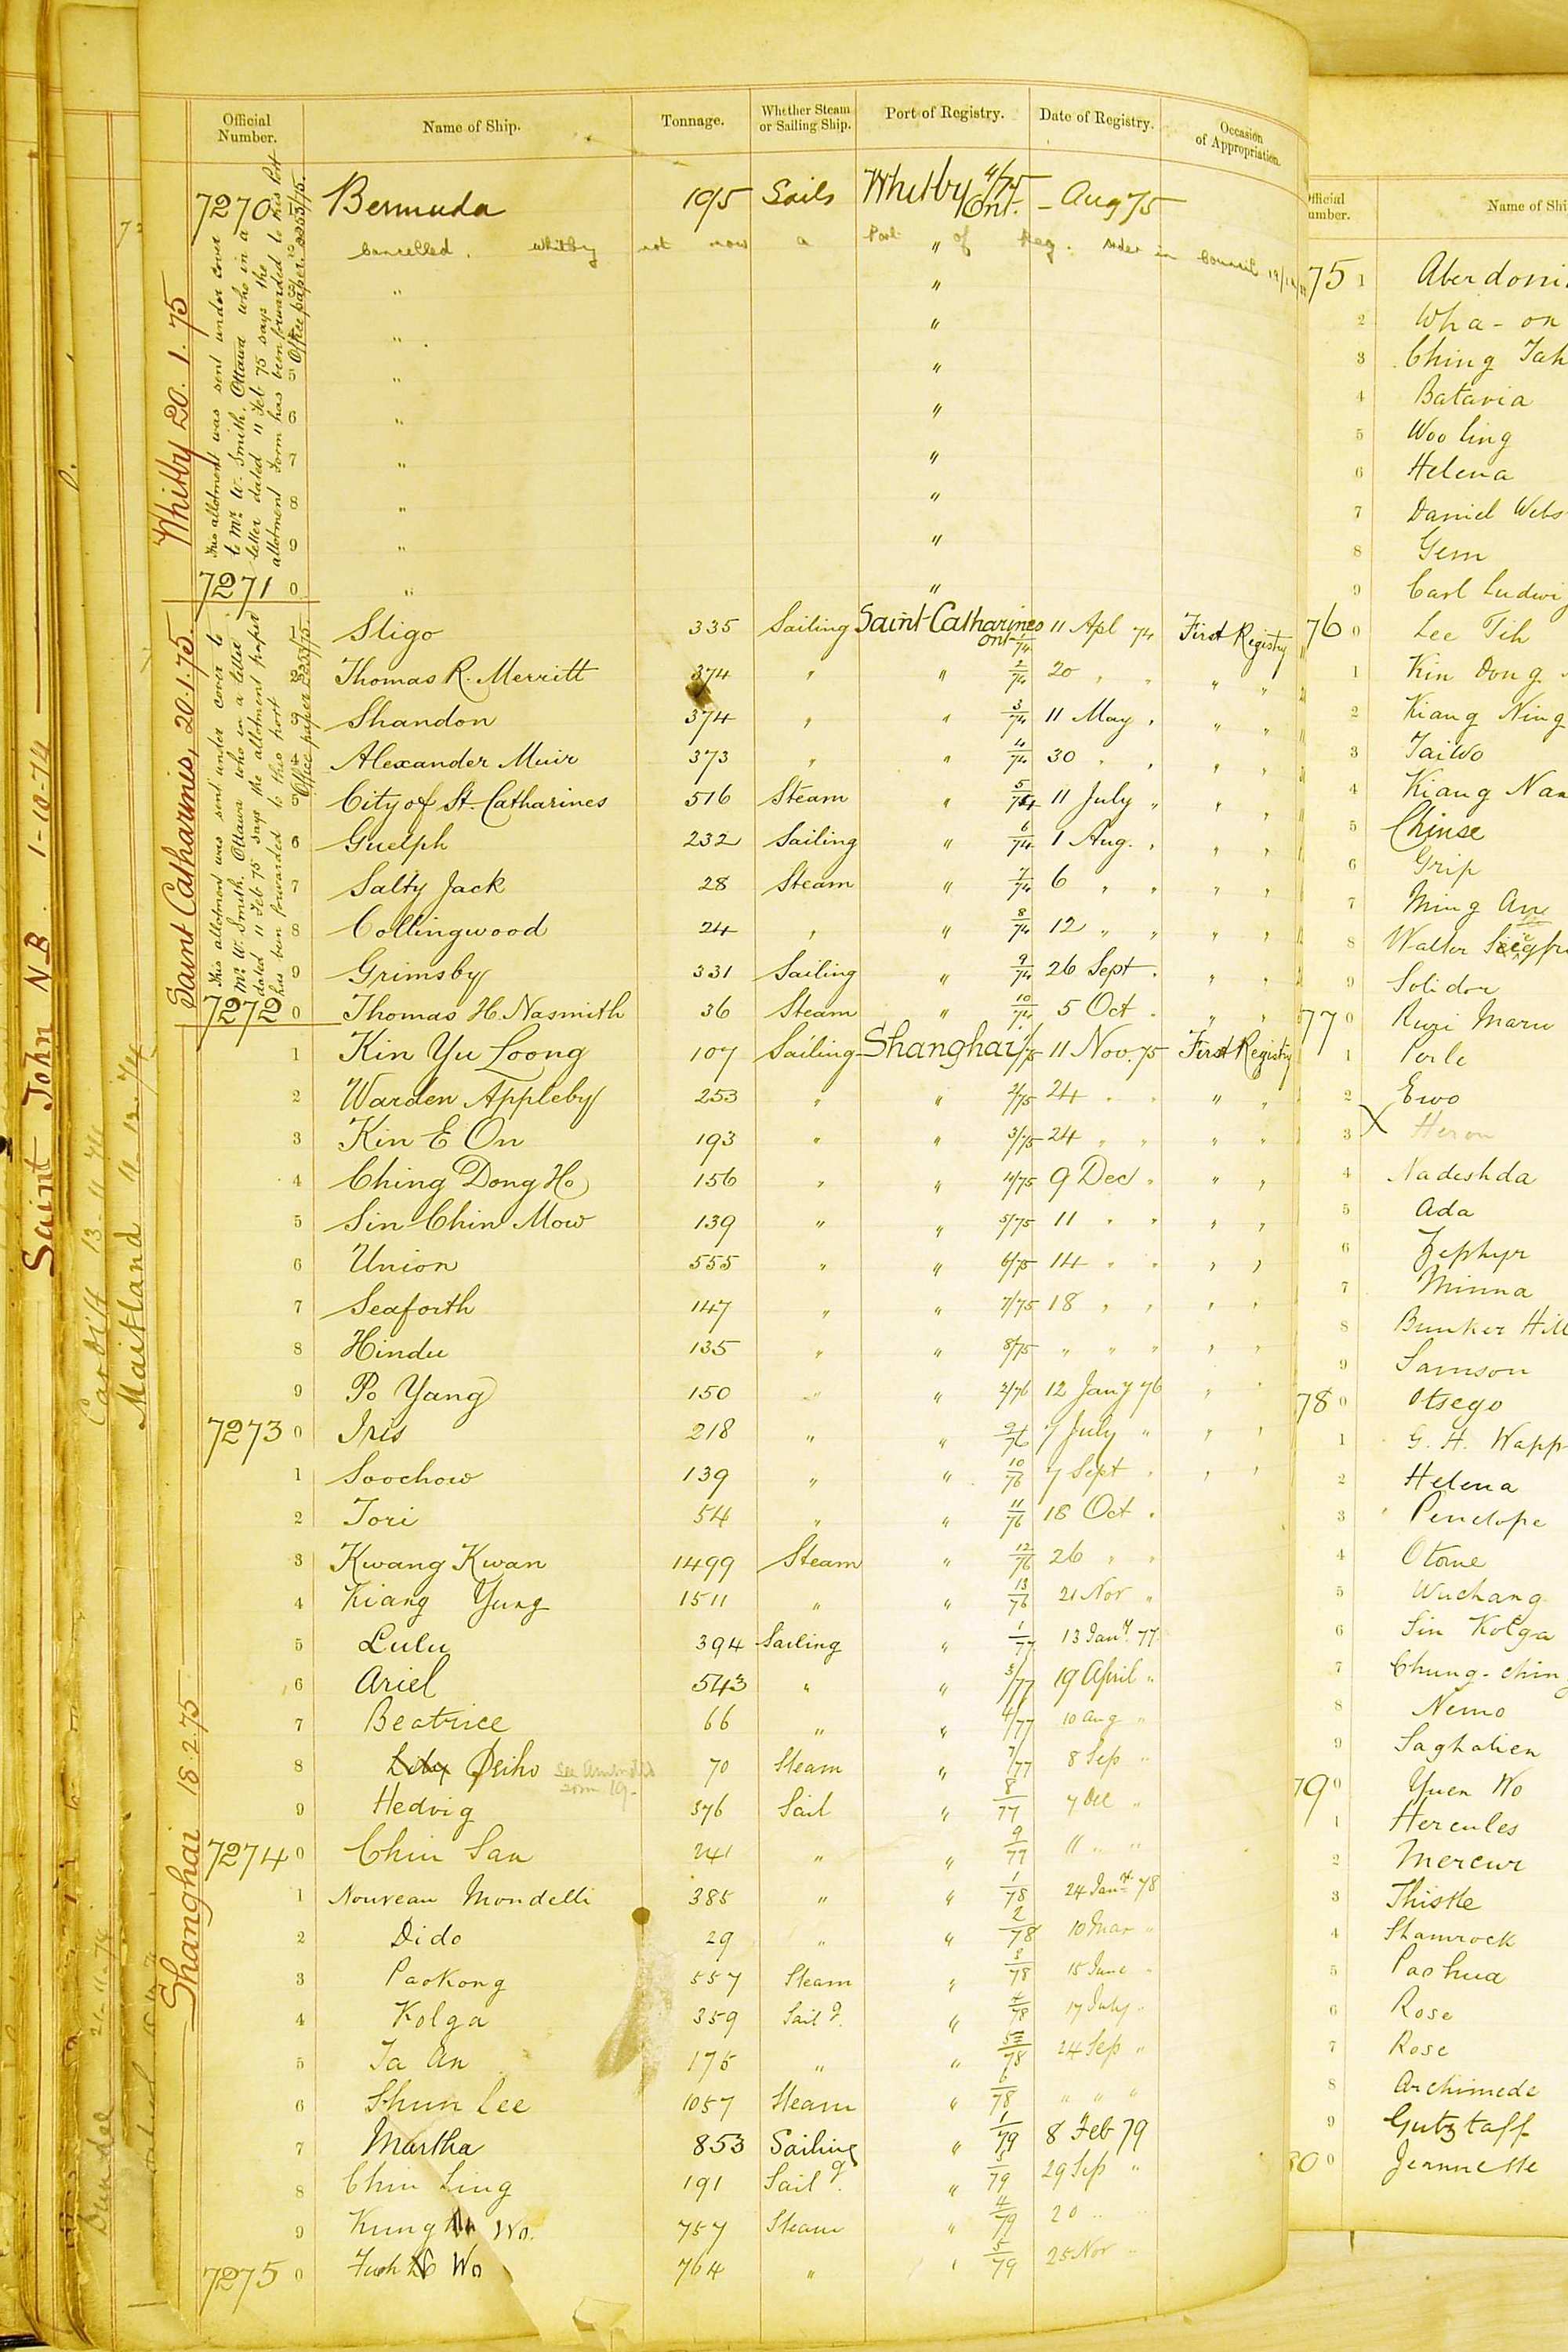 Official Number. Name of Ship. Tonnage. Whether Steam or Sailing Ship. Port of Registry. Date of Registry. Occasion of Appropriation.
7270 Bermuda 195 Sails Whitby Ont. 4/75 - Aug 75
Cancelled. Whitby not now a Port of Reg. order in Council
" "
" "
5 " "
6 " "
7 " "
8 " "
9 " "
7271 0 " "
Whitby 20. 1. 75
This allotment was sent under cover
to Mr. W. Smith, Ottawa who in a
letter dated 11 Feb 75 says the
allotment form has been forwarded to this Port
Office paper
1 Sligo 335 Sailing Saint Catharines Ont 1/74 11 Apl 74 First Registry
2 Thomas R. Merritt 374 " " 2/74 20 " " " "
3 Shandon 374 " " 3/74 11 May " " "
4 Alexander Muir 373 " " 4/74 30 " " " "
5 City of St. Catharines 516 Steam " 5/74 11 July " " "
6 Guelph 232 Sailing " 6/74 1 Aug. " " "
7 Salty Jack 28 Steam " 7/74 6 " " " "
8 Collingwood 24 " " 8/74 12 " " " "
9 Grimsby 331 Sailing " 9/74 26 Sept " " "
7272 0 Thomas H. Nasmith 36 Steam " 10/74 5 Oct " " "
Saint Catharines, 20.1.75.
This allotment was sent under cover to
Mr. W. Smith, Ottawa who in a letter
dated 11 Feb 75 says the allotment paper
has been forwarded to this port
Office paper
1 Kin Yu Loong 107 Sailing Shanghai 1/75 11 Nov. 75 First Registry
2 Warden Appleby 253 " " 2/75 24 " " " "
3 Kin E On 193 " " 3/75 24 " " " "
4 Ching Dong Ho 156 " " 4/75 9 Dec " " "
5 Sin Chin Mow 139 " " 5/75 11 " " " "
6 Union 555 " " 6/75 14 " " " "
7 Seaforth 147 " " 7/75 18 " " " "
8 Hindu 135 " " 8/75 " " " " "
9 Po Yang 150 " " 2/76 12 Jany 76 " "
7273 0 Iris 218 " " 9/76 7 July " " "
1 Soochow 139 " " 10/76 7 Sept " " "
2 Tori 54 " " 11/76 18 Oct "
3 Kwang Kwan 1499 Steam " 12/76 26 " "
4 Kiang Yung 1511 " " 13/76 21 Nov "
5 Lulu 394 Sailing " 1/77 13 Jany. 77
6 Ariel 543 " " 3/77 19 April "
7 Beatrice 66 " " 4/77 10 Aug "
8 Peiho see amended 70 Steam " 7/77 8 Sep "
9 Hedvig 376 Sail " 8/77 7 Dec "
7274 0 Chin San 241 " " 9/77 11 " "
1 Nouveau Mondelli 385 " " 1/78 24 Jan 78
2 Dido 29 " " 2/78 10 Mar "
3 Paokong 557 Steam " 3/78 15 June "
4 Kolga 359 Sailg. " 4/78 17 July "
5 Ta An 175 " " 5/78 24 Sep "
6 Shun Lee 1057 Steam " 6/78 " " "
7 Martha 853 Sailing " 1/79 8 Feb 79
8 Chin Ling 191 Sailg. " 3/79 29 Sep "
9 Kung Wo. 757 Steam " 4/79 20 "
7275 0 Fuh Wo 764 " " 5/79 25 Nov "
Shanghai 18.2.75
Saint John N.B. 1-10-74
Cardiff 13-11-74
Maitland 11-12-74
Dundee 21-11-74
Official Number. Name of Shi
75 1 Aberdoni
2 Wha-on
3 Ching Tah
4 Batavia
5 Woo ling
6 Helena
7 Daniel Webs
8 Gem
9 Carl Ludwi
76 0 Lee Tih
1 Kin Dong
2 Kiang Ning
3 Taiwo
4 Kiang Nan
5 Chinse
6 Grip
7 Ming
8 Walter
9 Solidor
77 0 Maru
1 Perle
2 Ewo
3 X Heron
4 Nadeshda
5 Ada
6 Zephyr
7 Minna
8 Bunker Hill
9 Samson
78 0 Otsego
1 G. H. Wapp
2 Helena
3 Penelope
4 Otome
5 Wuchang
6 Sin Kolga
7 Chung-ching
8 Nemo
9 Saghalien
79 0 Yuen Wo
1 Hercules
2 Mercur
3 Thistle
4 Shamrock
5 Paohua
6 Rose
7 Rose
8 Archimede
9 Gutzlaff
80 0 Jeannette